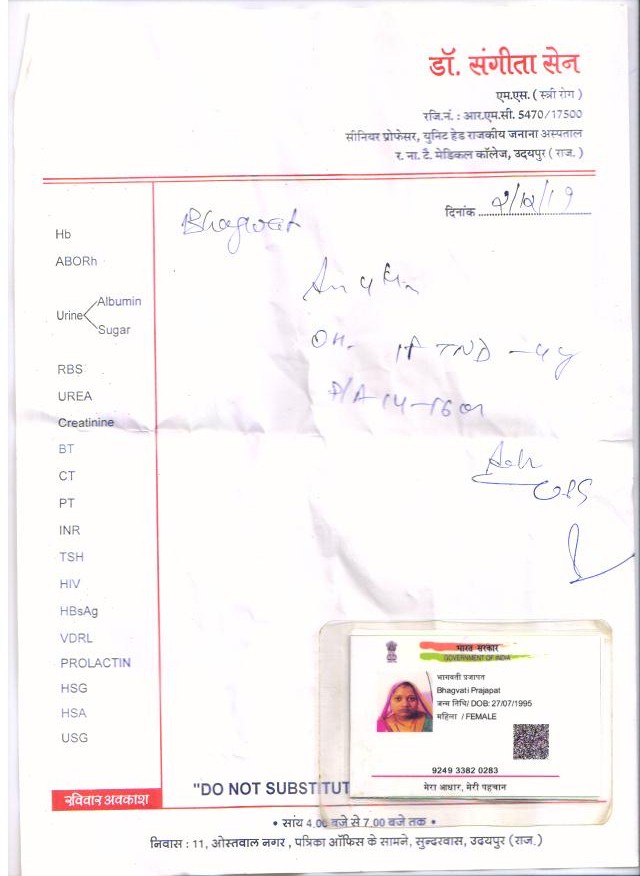 डॉ. संगीता सेन
एम.एस. ( स्त्री रोग )
रजि.नं. : आर.एम.सी. 5470/17500
सीनियर प्रोफेसर, युनिट हेड राजकीय जनाना अस्पताल
र. ना. टै. मेडिकल कॉलेज, उदयपुर ( राज. )
दिनांक
Bhagwati
Hb
ABORh
Urine Albumin
Sugar
OH-
P/A 14-16
RBS
UREA
Creatinine
BT
CT
PT
INR
TSH
HIV
HBsAg
VDRL
PROLACTIN
HSG
HSA
USG
Adv
भारत सरकार
GOVERNMENT OF INDIA
भागवती प्रजापत
Bhagvati Prajapat
जन्म तिथि/ DOB: 27/07/1995
महिला / FEMALE
9249 3382 0283
मेरा आधार, मेरी पहचान
रविवार अवकाश
"DO NOT SUBSTITUT
• सांय 4.00 बजे से 7.00 बजे तक •
निवास : 11, ओस्तवाल नगर , पत्रिका ऑफिस के सामने, सुन्दरवास, उदयपुर (राज.)